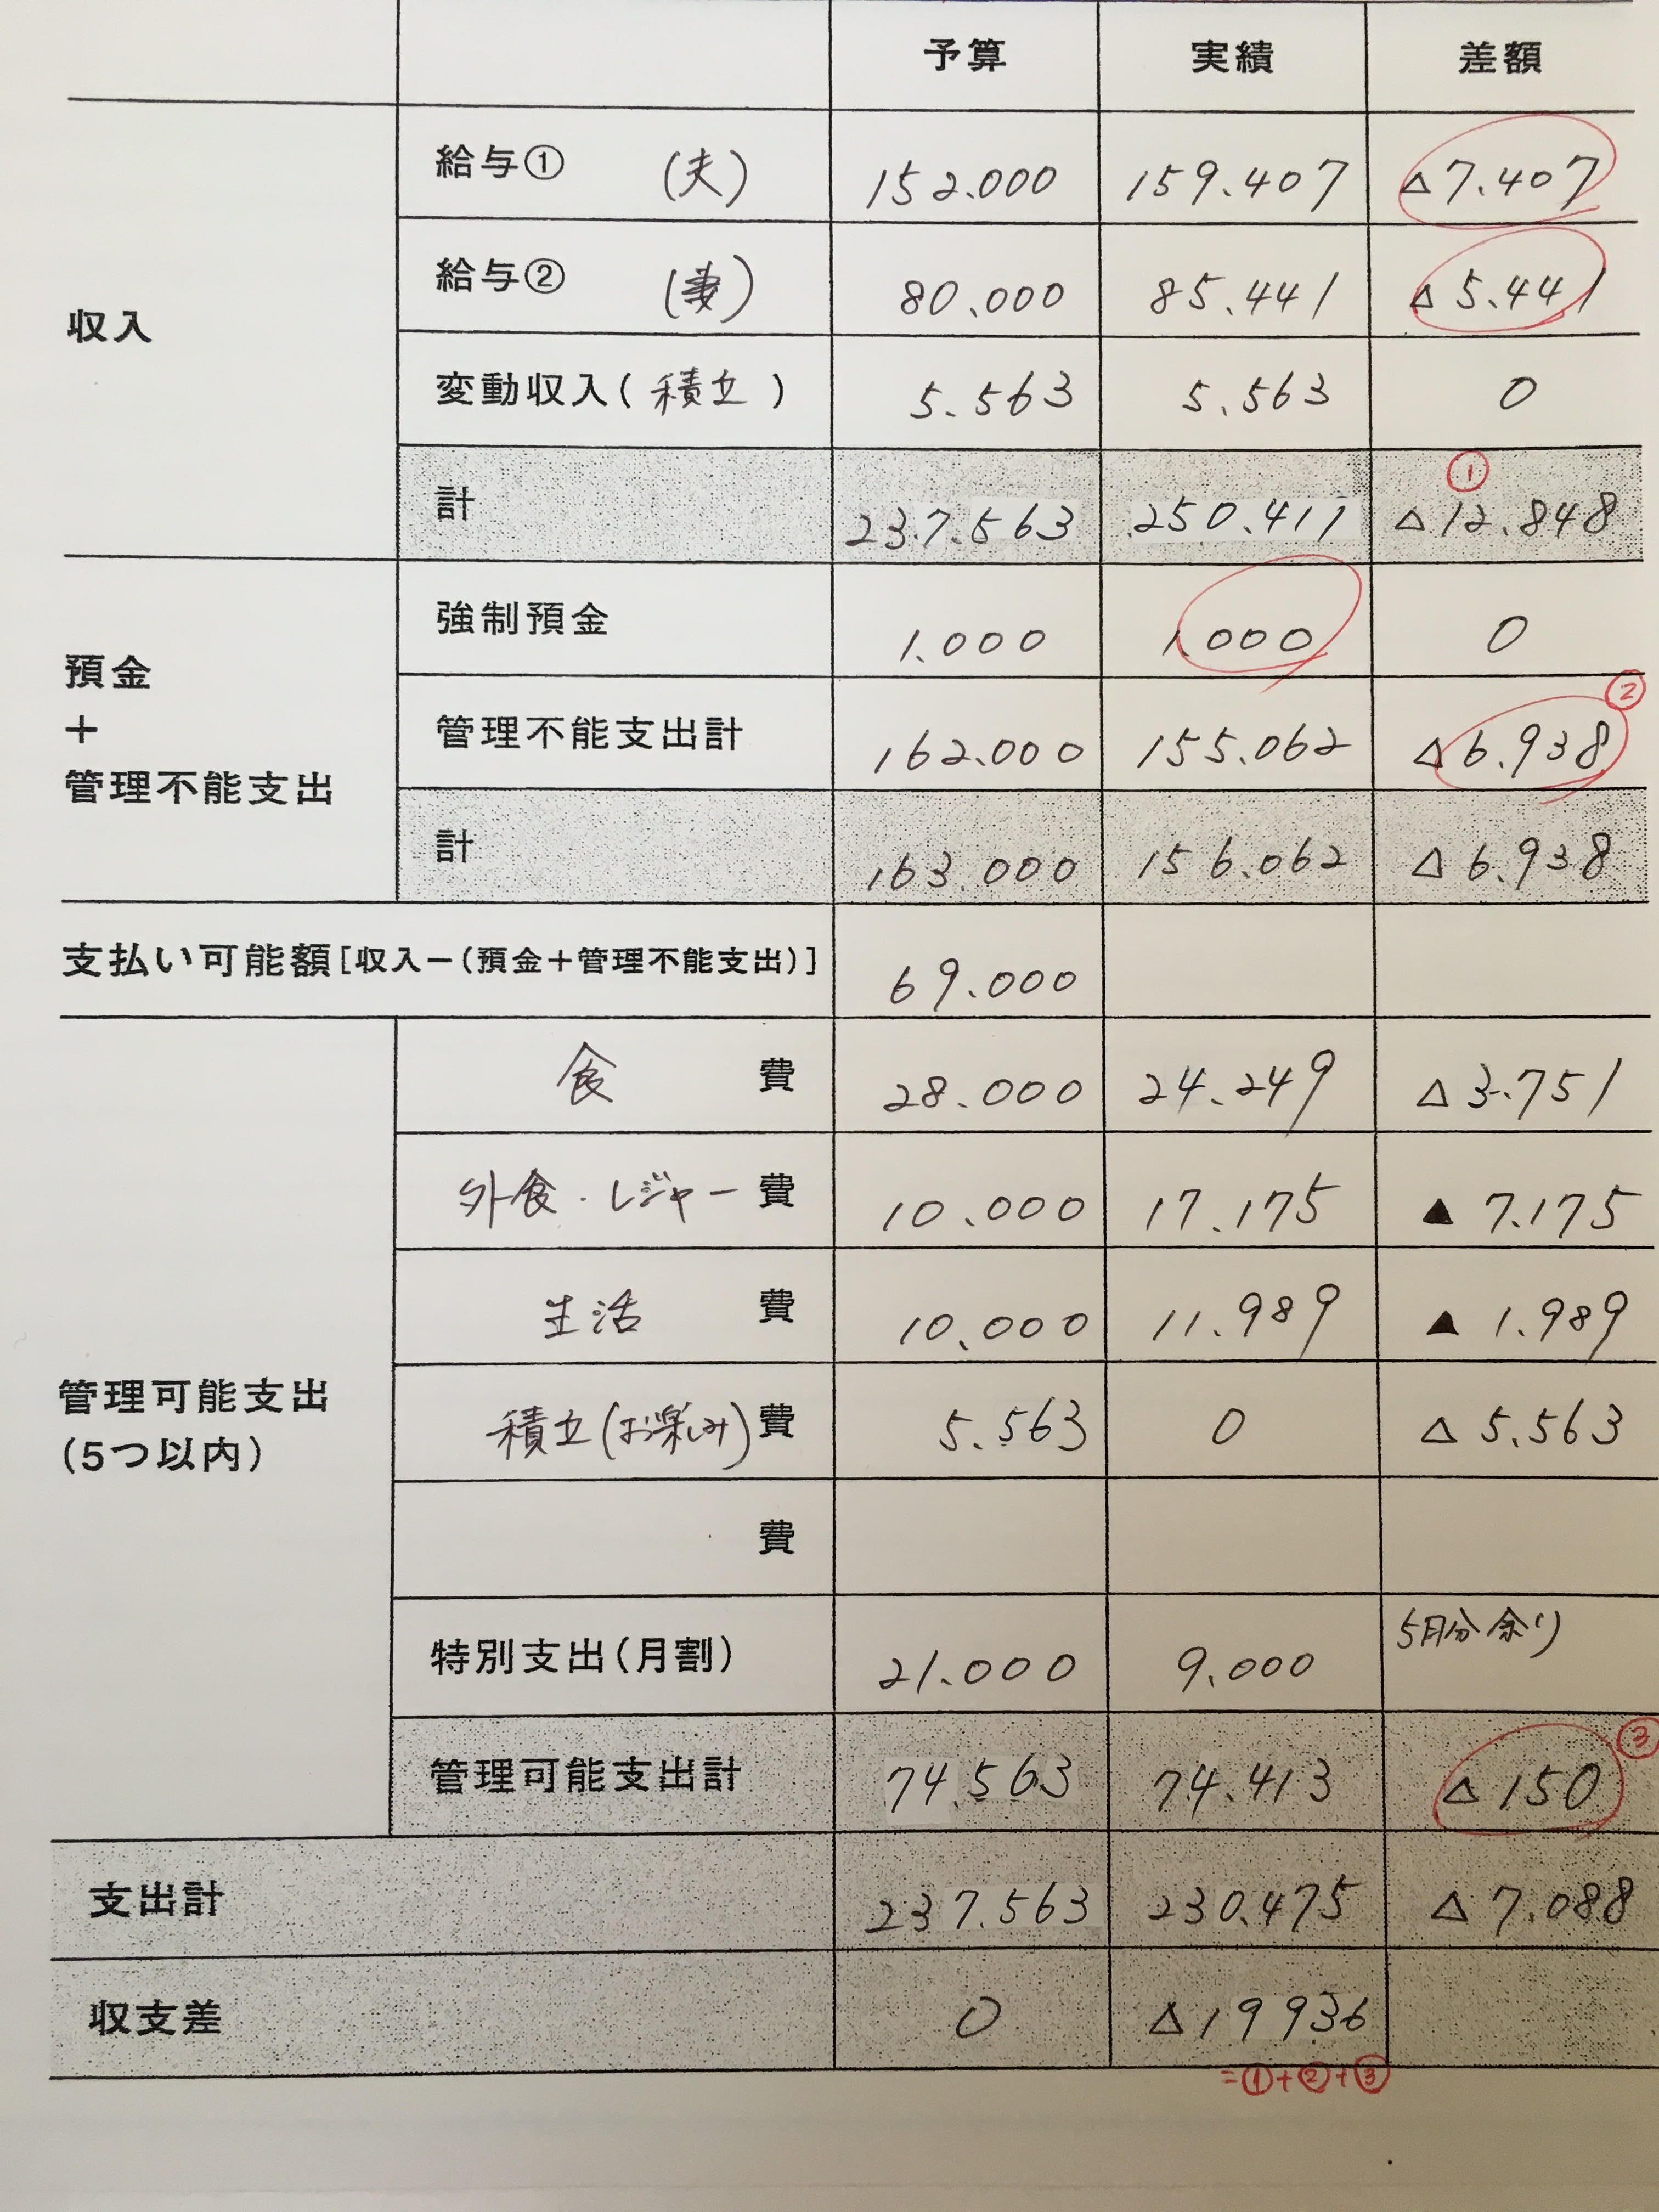 予算 実績 差額
収入
給与① (夫) 152.000 159.407 △7.407
給与② (妻) 80.000 85.441 △5.441
変動収入(積立) 5.563 5.563 0
①
計 237.563 250.411 △12.848
預金
+
管理不能支出
強制預金 1.000 1.000 0
②
管理不能支出計 162.000 155.062 △6.938
計 163.000 156.062 △6.938
支払い可能額[収入−(預金+管理不能支出)] 69.000
管理可能支出
(5つ以内)
食 費 28.000 24.249 △3.751
外食・レジャー費 10.000 17.175 ▲7.175
生活 費 10.000 11.989 ▲1.989
積立(お楽しみ)費 5.563 0 △5.563
費
特別支出(月割) 21.000 9.000 5月分余り
③
管理可能支出計 74.563 74.413 △150
支出計 237.563 230.475 △7.088
収支差 0 △19936
=①+②+③